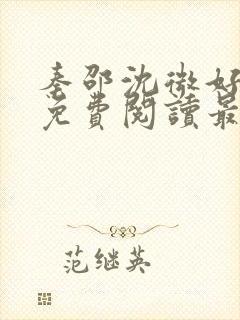 秦邵沈微好
免費閱讀最
范继英